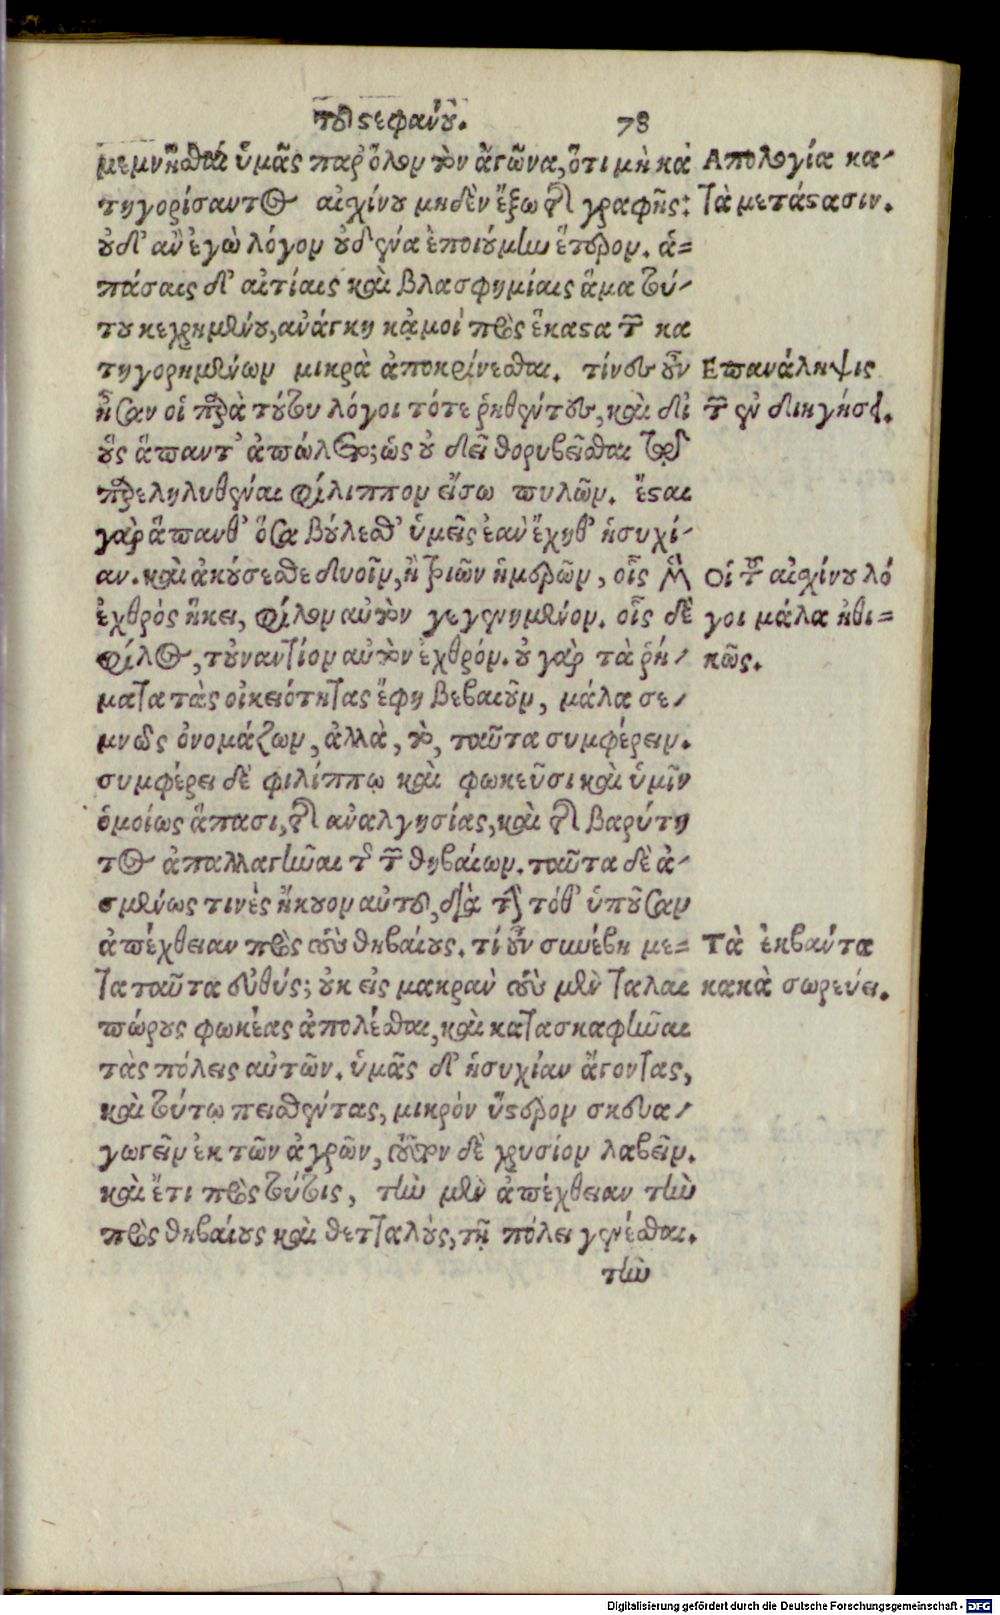 τοῦ στεφάνου. 78
μεμνῆσθαι ὑμᾶς παρ' ὅλον τὸν ἀγῶνα, ὅτι μὴ κα
τηγορίσαντος αἰσχίνου μηδὲν ἔξω τῆς γραφῆς:
οὐδ' ἂν ἐγὼ λόγον οὐδένα ἐποιούμην ἕτερον. ἁ=
πάσαις δ' αἰτίαις καὶ βλασφημίαις ἅμα τού-
του κεχρημένου, ἀνάγκη κᾀμοὶ πρὸς ἕκαστα τῶν κα
τηγορημένων μικρὰ ἀποκρίνεσθαι. τίνες οὖν
ἦσαν οἱ παρὰ τούτου λόγοι τότε ῥηθέντες, καὶ δι'
οὓς ἅπαντ' ἀπώλετο; ὡς οὐ δεῖ θορυβεῖσθαι τῷ
παρεληλυθέναι φίλιππον εἴσω πυλῶν. ἔσται
γὰρ ἅπανθ' ὅσα βούλεσθ' ὑμεῖς ἐὰν ἔχηθ' ἡσυχί-
αν. καὶ ἀκούσεσθε δυοῖν, ἢ τριῶν ἡμερῶν, οἷς μὲν
ἐχθρὸς ἥκει, φίλον αὐτὸν γεγενημένον. οἷς δὲ
φίλος, τοὐναντίον αὐτὸν ἐχθρόν. οὐ γὰρ τὰ ῥή-
ματα τὰς οἰκειότητας ἔφη βεβαιοῦν, μάλα σε-
μνῶς ὀνομάζων, ἀλλὰ, τὸ, ταῦτα συμφέρειν.
συμφέρει δὲ φιλίππῳ καὶ φωκεῦσι καὶ ὑμῖν
ὁμοίως ἅπασι, τῆς ἀναλγησίας, καὶ τῆς βαρύτη
τος ἀπαλλαγῆναι τῆς τῶν θηβαίων. ταῦτα δὲ ἀ-
σμένως τινὲς ἤκουον αὐτοῦ, διὰ τὴν τόθ' ὑποῦσαν
ἀπέχθειαν πρὸς τοὺς θηβαίους. τί οὖν συνέβη με=
τα ταῦτα εὐθύς; οὐκ εἰς μακρὰν τοὺς μὲν ταλαι
πώρους φωκέας ἀπολέσθαι, καὶ κατασκαφῆναι
τὰς πόλεις αὐτῶν. ὑμᾶς δ' ἡσυχίαν ἄγοντας,
καὶ τούτῳ πεισθέντας, μικρὸν ὕστερον σκευα-
γωγεῖν ἐκ τῶν ἀγρῶν, τοῦτον δὲ χρυσίον λαβεῖν.
καὶ ἔτι πρὸς τούτοις, τὴν μὲν ἀπέχθειαν τὴν
πρὸς θηβαίους καὶ θετταλοὺς, τῇ πόλει γενέσθαι.
τὴν
Απολογία κα-
τὰ μετάστασιν.
Επανάληψις
τῶν ἐν διηγήσει.
Οἱ τοῦ αἰσχίνου λό
γοι μάλα ἠθι=
κῶς.
Τὰ ἐκβαύτα
κακὰ σωρεύει.
Digitalisierung gefördert durch die Deutsche Forschungsgemeinschaft - DFG